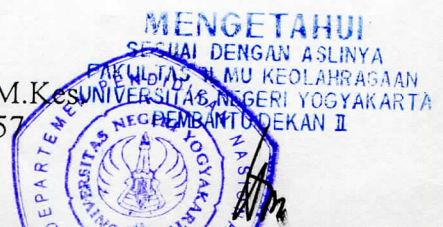 MENGETAHUI
SESUAI DENGAN ASLINYA
FAKULTAS ILMU KEOLAHRAGAAN
M.Kes
UNIVERSITAS NEGERI YOGYAKARTA
57
PEMBANTU DEKAN II
DEPARTEMEN PENDIDIKAN NASI
UNIVERSITAS NEGERI YOGYAKARTA